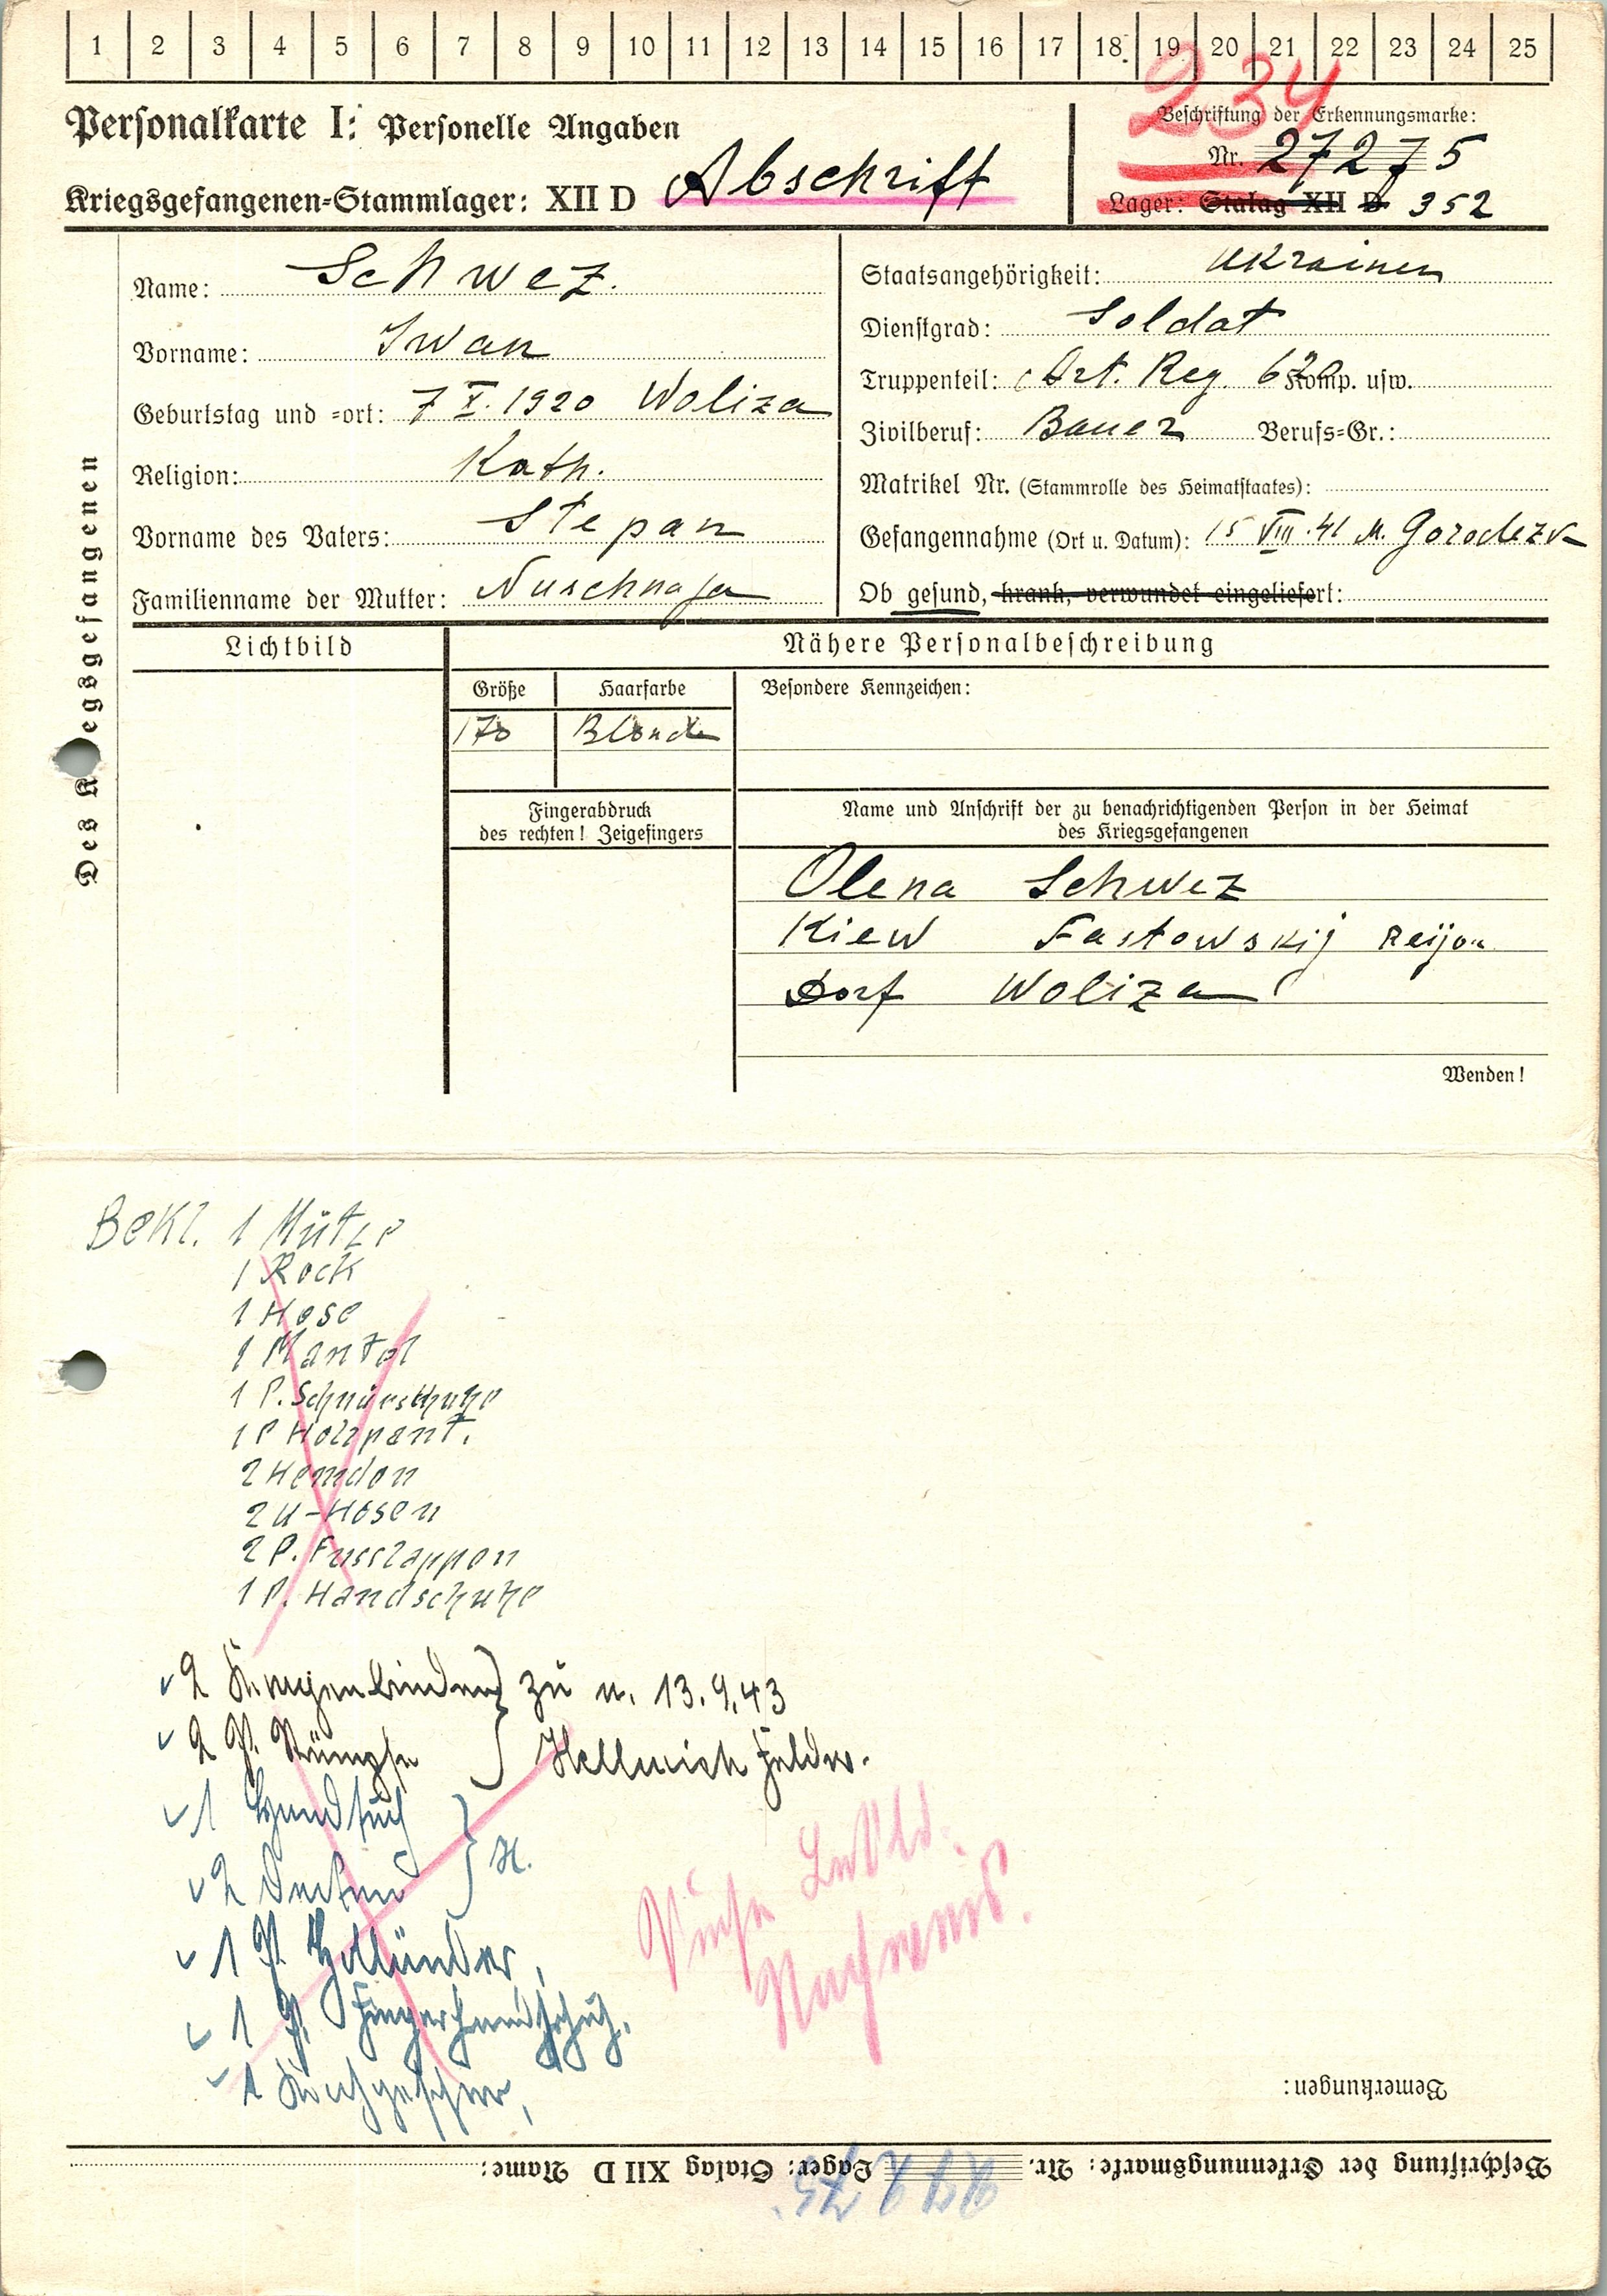 1 2 3 4 5 6 7 8 9 10 11 12 13 14 15 16 17 18 19 20 21 22 23 24 25
234
Personalkarte I: Personelle Angaben
Beschriftung der Erkennungsmarke:
Nr. 27275
Kriegsgefangenen-Stammlager: XII D Abschrift
Lager: Stalag XII D 352
Des Kriegsgefangenen
Name: Schwez.
Vorname: Iwan
Geburtstag und -ort: 7 X. 1920 Woliza
Religion: Kath.
Vorname des Vaters: Stepan
Familienname der Mutter: Nuschnaja
Staatsangehörigkeit: Ukrainer
Dienstgrad: Soldat
Truppenteil: Art. Reg. 620 Komp. usw.
Zivilberuf: Bauer Berufs-Gr.:
Matrikel Nr. (Stammrolle des Heimatstaates):
Gefangennahme (Ort u. Datum): 15 VIII.41 M.
Ob gesund, krank, verwundet eingeliefert:
Lichtbild
Nähere Personalbeschreibung
Größe Haarfarbe Besondere Kennzeichen:
170 Blonde
Fingerabdruck
des rechten! Zeigefingers
Name und Anschrift der zu benachrichtigenden Person in der Heimat
des Kriegsgefangenen
Olena Schwez
Kiew Fastowskij Reijon
Dorf Woliza
Wenden!
Bekl. 1 Mütze
1 Rock
1 Hose
1 Mantel
1 P. Schnürschuhe
1 P Holzpant.
2 Hemden
2 U-Hosen
2 P. Fusslappen
1 P. Handschuhe
2 Kragenbinden } zu u. 13.9.43
2 P. Strümpfe } Hellmich Feldw.
1 Handtuch
2 Decken } H.
1 P. Holländer,
1 P. Fingerhandschuh,
1 Kochgeschirr,
Siehe
Bemerkungen:
Beschriftung der Erkennungsmarke: Nr. 27275 Lager: Stalag XII D Name: